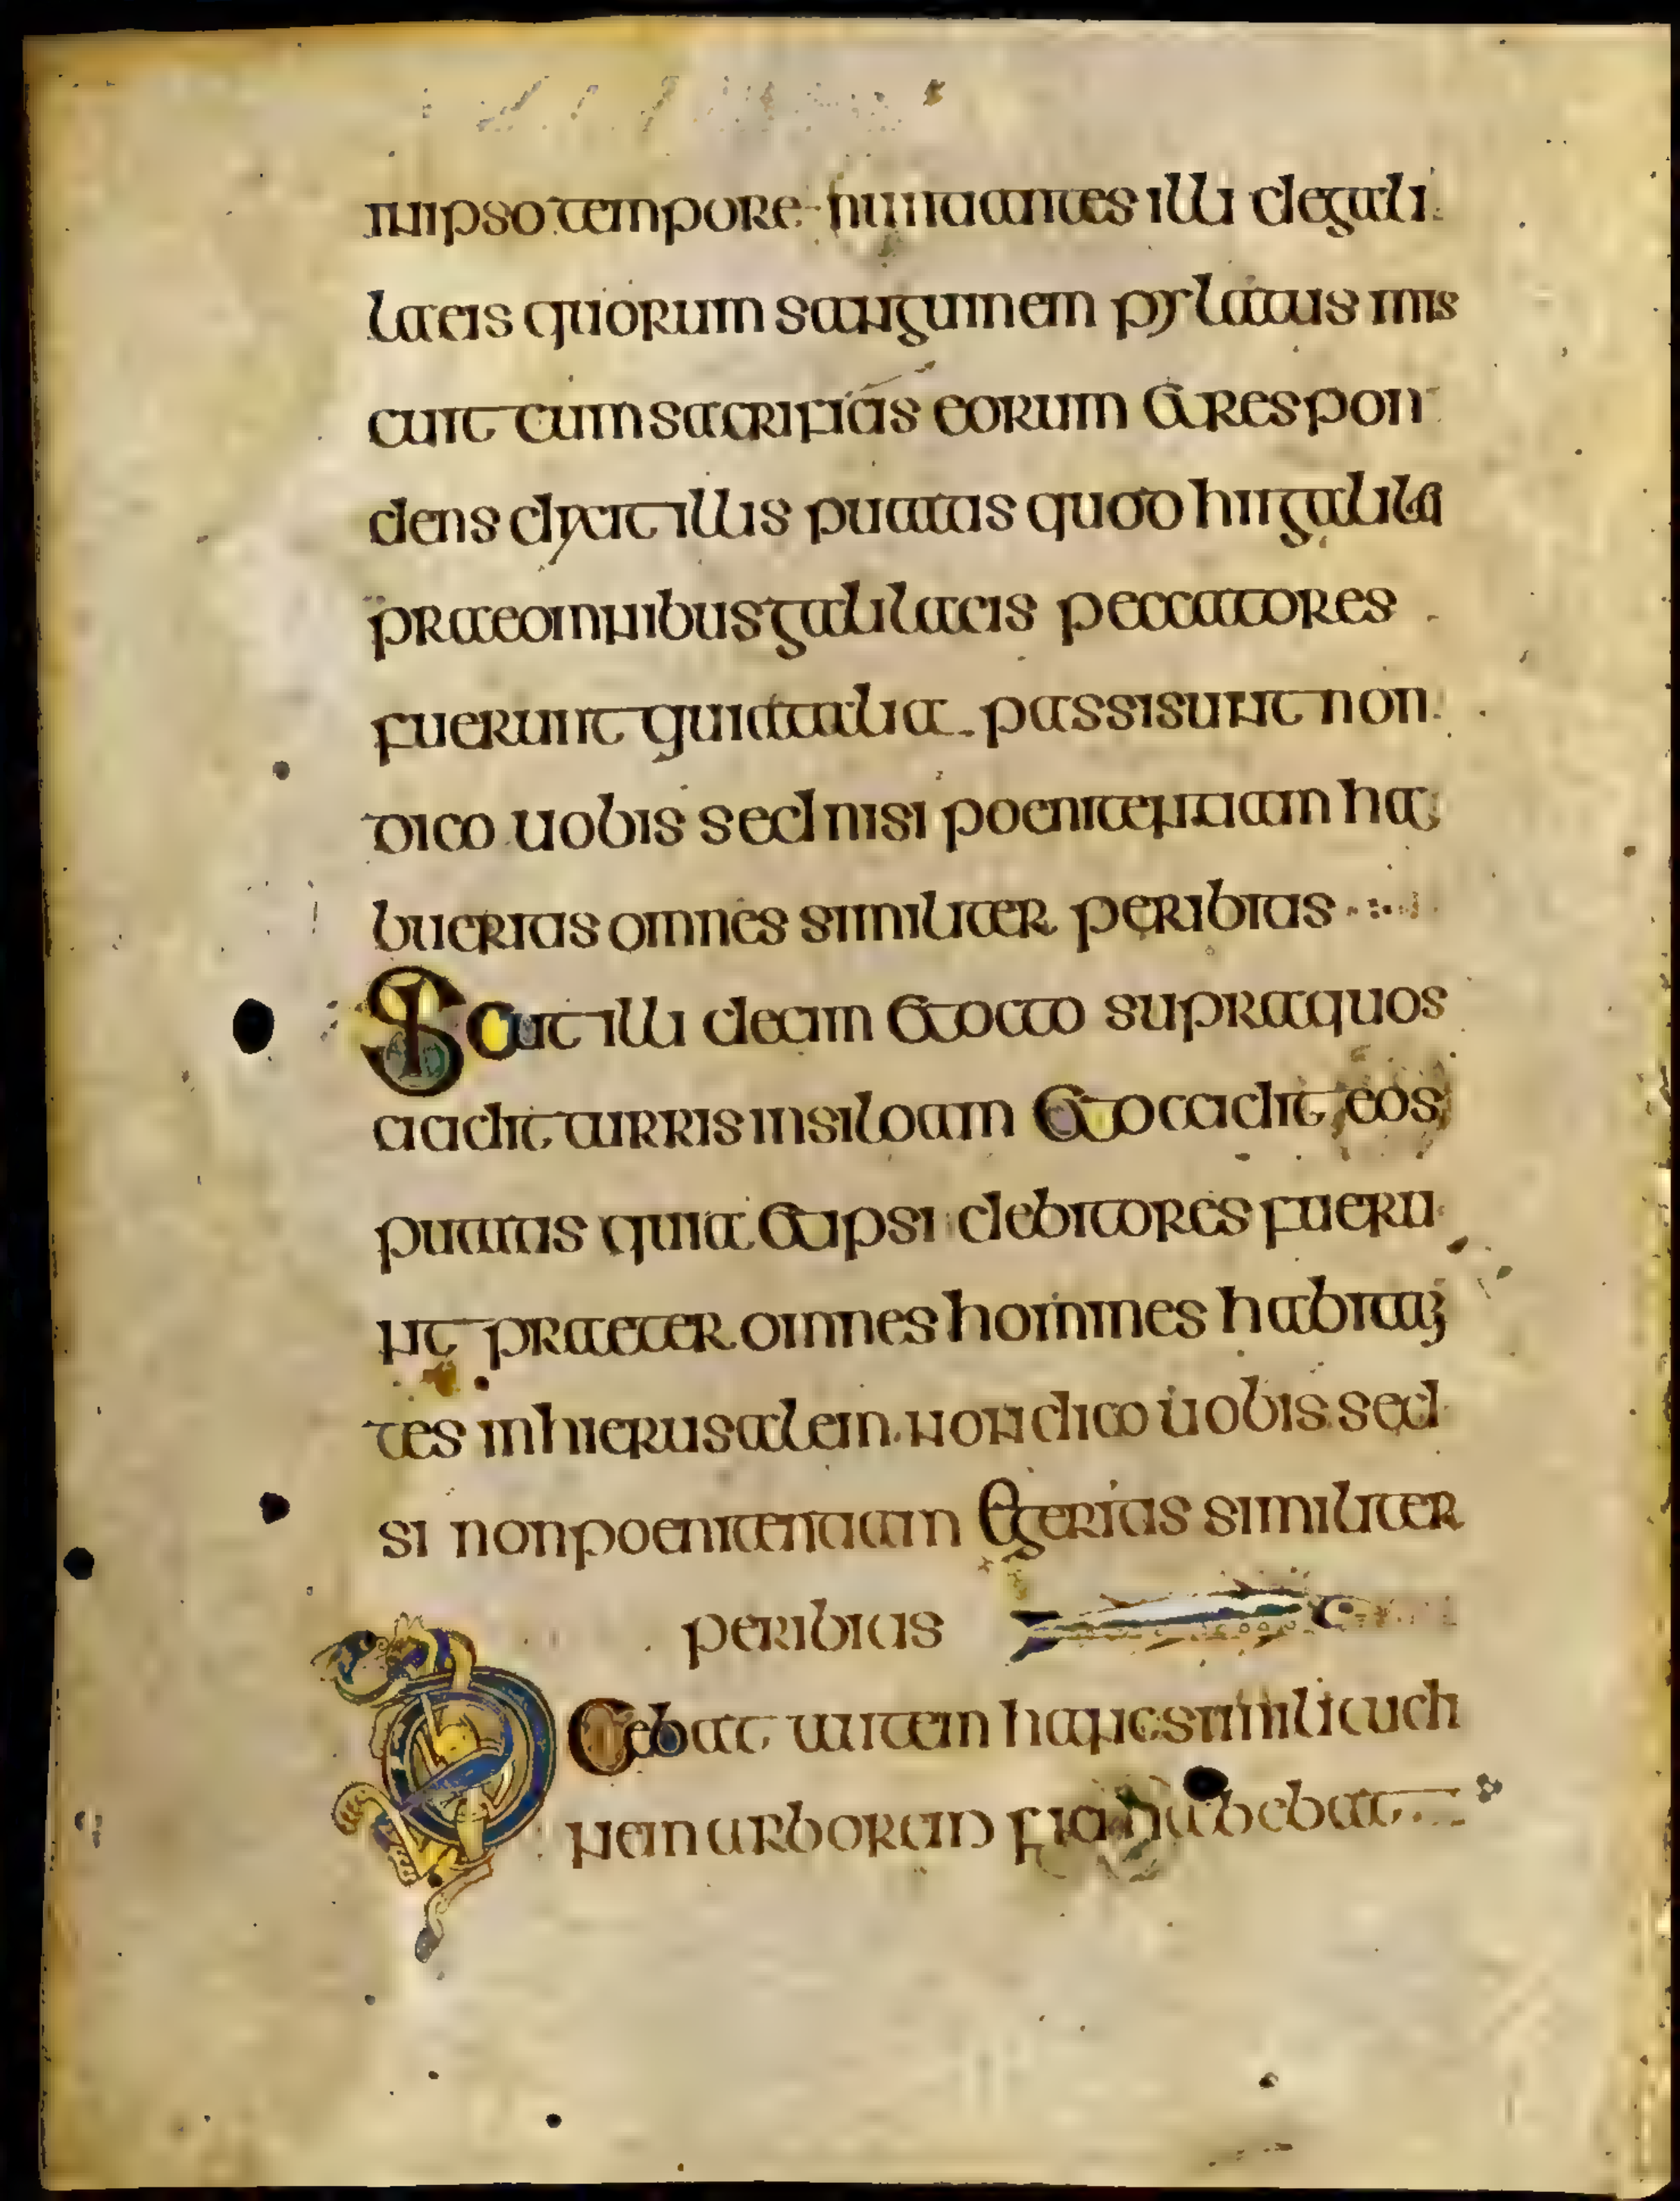 inipso tempore nuntiantes illi degali
laeis quorum sanguinem pylatus mis
cuit cum sacrificiis eorum Et respon
dens dixit illis putatis quod hii galilei
prae omnibus galilaeis peccatores
fuerunt quia talia passi sunt non
dico uobis sed nisi poenitentiam ha
bueritis omnes similiter peribitis
Sicut illi decim Et octo supra quos
cicidit turris in siloam Et occidit eos
putatis quia Et ipsi debitores fueru
nt praeter omnes homines habitan
tes in hierusalem non dico uobis sed
si non poenitentiam Egeritis similiter
peribitis
Dicebat autem hanc similitudi
nem arborem fici habebat